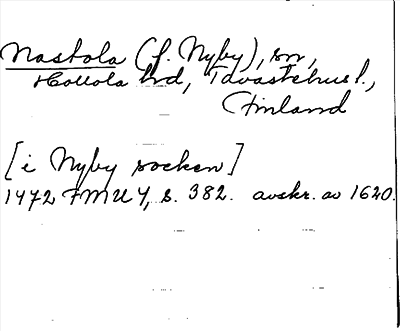 Nastola (f. Nyby), sn,
Hollola hd, Tavastehus l.,
Finland
[i Nyby socken]
1472 FMU 4, s. 382. avskr. av 1620.